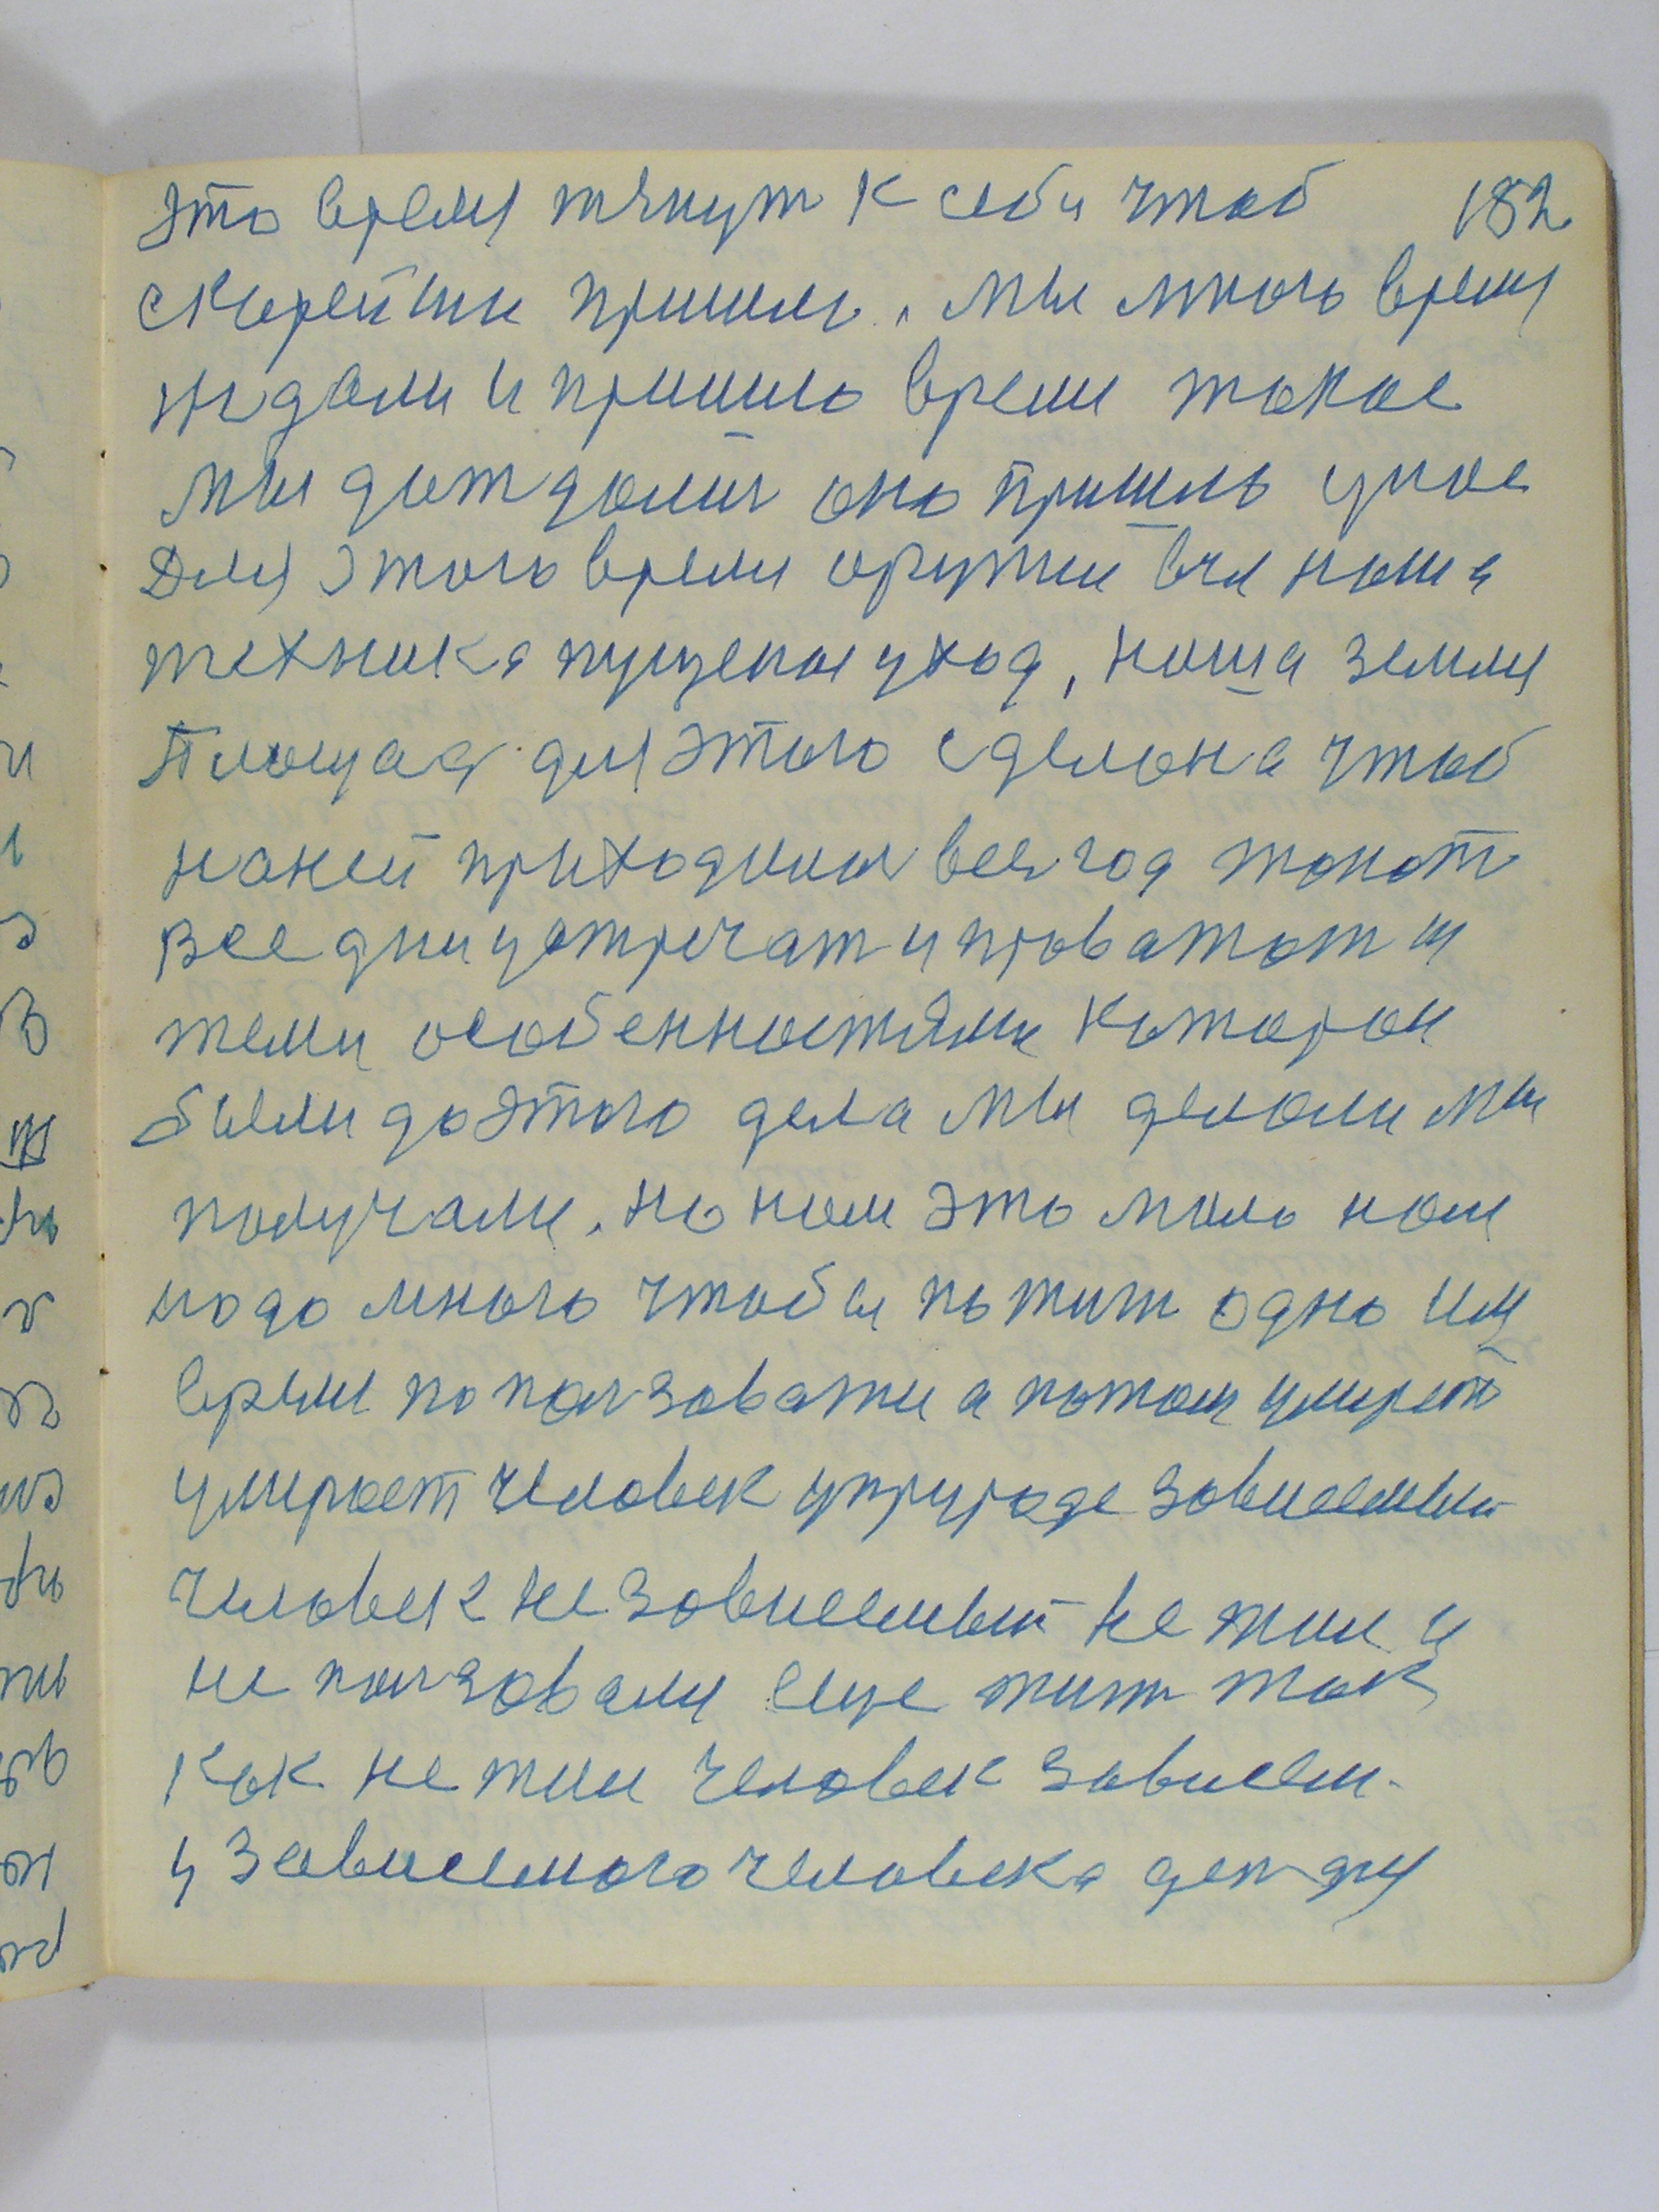 это время тянут к себи чтоб 182
скорейши пришло. мы много время
ждали и пришло время такое
мы дождалис оно пришло у нас
Для этого время оружие вся наша
техника пущеная уход, наша земля
Площад для этого сделана чтоб
на ней приходили вся год
все дни устречат и проважат и
теми особенностями которои
были до этого дела мы делали мы
получали. но нам это мало нам
надо много чтобы по жит одно
время по ползоватси а потом умерет
умирает человек у природе зависемый
человек не зависемый не жил и
не ползовался еще жит так
как не жил человек зависем.
у зависемого человека